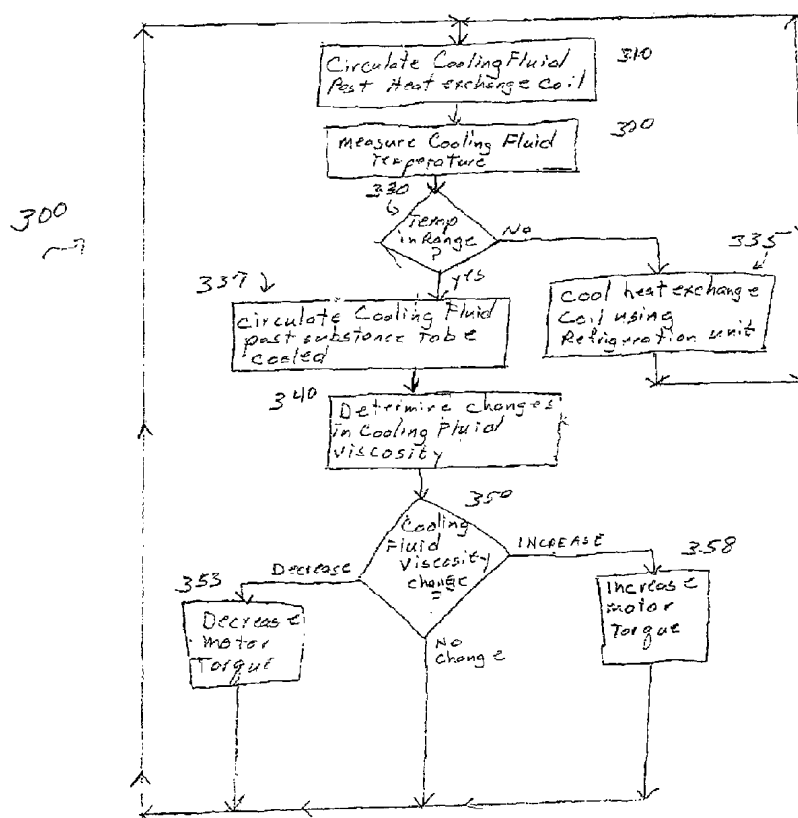 Circulate Cooling Fluid
Past Heat exchange coil
310
measure Cooling Fluid
Temperature
320
330
Temp
in Range
?
No
yes
300
335
Cool heat exchange
Coil using
Refrigeration unit
337
Circulate Cooling Fluid
past substance to be
cooled
340
Determine changes
in Cooling Fluid
viscosity
350
Cooling
Fluid
Viscosity
change
=
Decrease
INCREASE
353
Decrease
motor
Torque
358
Increase
motor
Torque
No
change